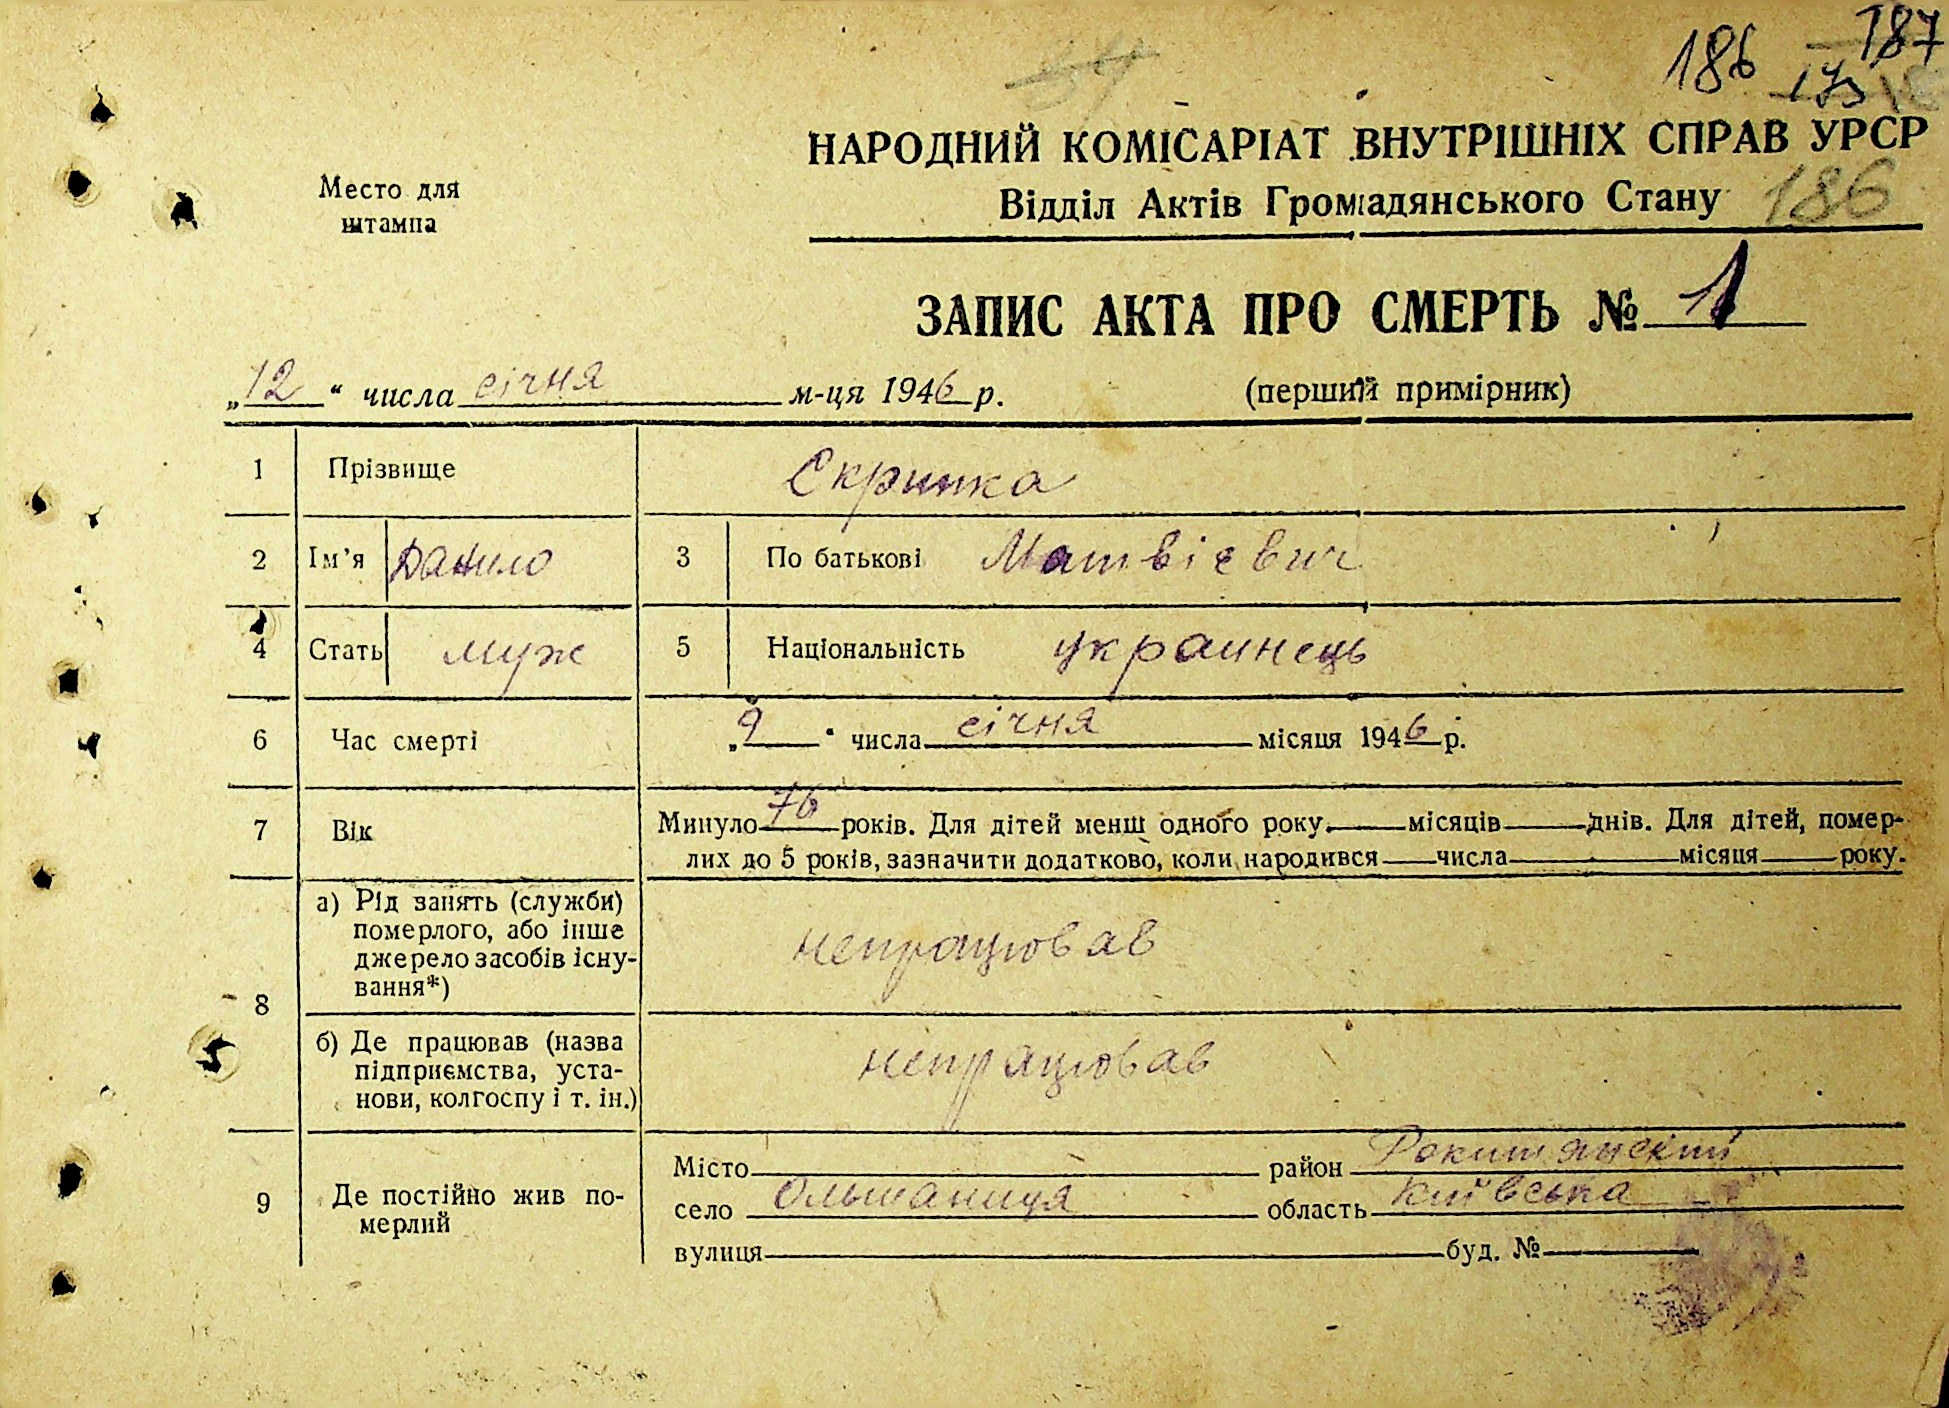 186 187
173
НАРОДНИЙ КОМІСАРІАТ ВНУТРІШНІХ СПРАВ УРСР
Відділ Актів Громадянського Стану 186
Место для
штампа
ЗАПИС АКТА ПРО СМЕРТЬ № 1
„12“ числа січня м-ця 1946 р. (перший примірник)
1 Прізвище Скрипка
2 Ім’я Данило 3 По батькові Матвієвич
4 Стать муж 5 Національність украинець
6 Час смерті „9“ числа січня місяця 1946 р.
7 Вік Минуло 76 років. Для дітей менш одного року — місяців — днів. Для дітей, помер-
лих до 5 років, зазначити додатково, коли народився — числа — місяця — року.
8 а) Рід занять (служби)
померлого, або інше
джерело засобів існу-
вання*)
непрацював
б) Де працював (назва
підприємства, уста-
нови, колгоспу і т. ін.)
непрацював
9 Де постійно жив по-
мерлий
Місто район Рокитянский
село Ольшаниця область Київська
вулиця буд. №